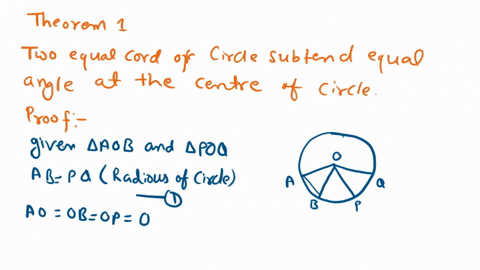 Theorem 1
Two equal cord of Circle subtend equal
angle at the centre of circle.
Proof:-
given ΔAOB and ΔPOQ
AB=PQ (Radious of Circle)
①
AO = OB=OP= O
O
A
B
P
Q